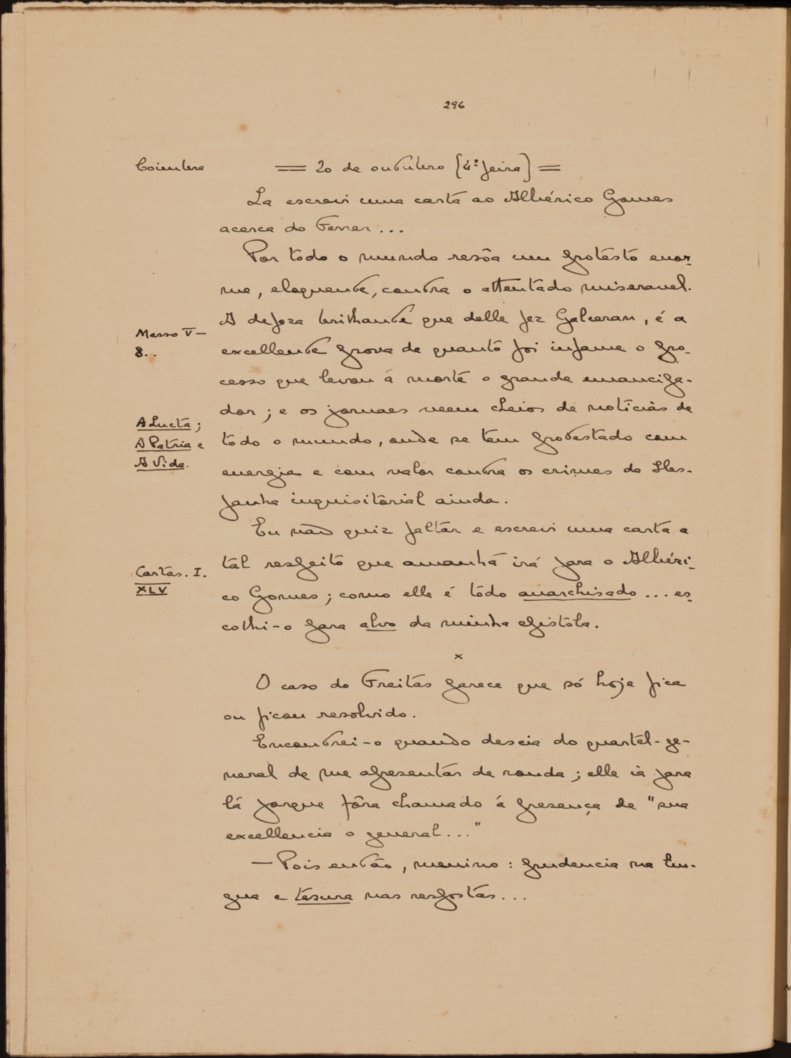 296
Coimbra
= 20 de outubro (4ª feira) =
Lá escrevi uma carta ao Albérico Gomes
acerca do Ferrer...
Por todo o mundo resôa um protésto enor-
me, eloquente, contra o attentado miseravel.
A defeza brilhante que delle fez Galceran, é a
Masso V-
8..
excellente prova de quanto foi infame o pro-
cesso que levou á morte o grande emancipa-
dor; e os jornaes veem cheios de noticias de
A Lucta;
A Patria e
A Vida.
todo o mundo, onde se tem protestado com
energia e com valor contra os crimes da Hes-
panha inquisitorial ainda.
Eu não quiz faltar e escrevi uma carta a
tal respeito que amanhã irá para o Albéri-
Cartas. I.
XLV
co Gomes; como elle é tôdo anarchisado... es-
colhi-o para alvo da minha epistola.
x
O caso do Freitas parece que só hoje fica
ou ficou resolvido.
Encontrei-o quando descia do quartel-ge-
neral de me apresentar de ronda; elle ia para
lá porque fôra chamado á presença de "sua
excellencia o general..."
— Pois então, menino: prudencia na lin-
gua e tesura nas respostas...